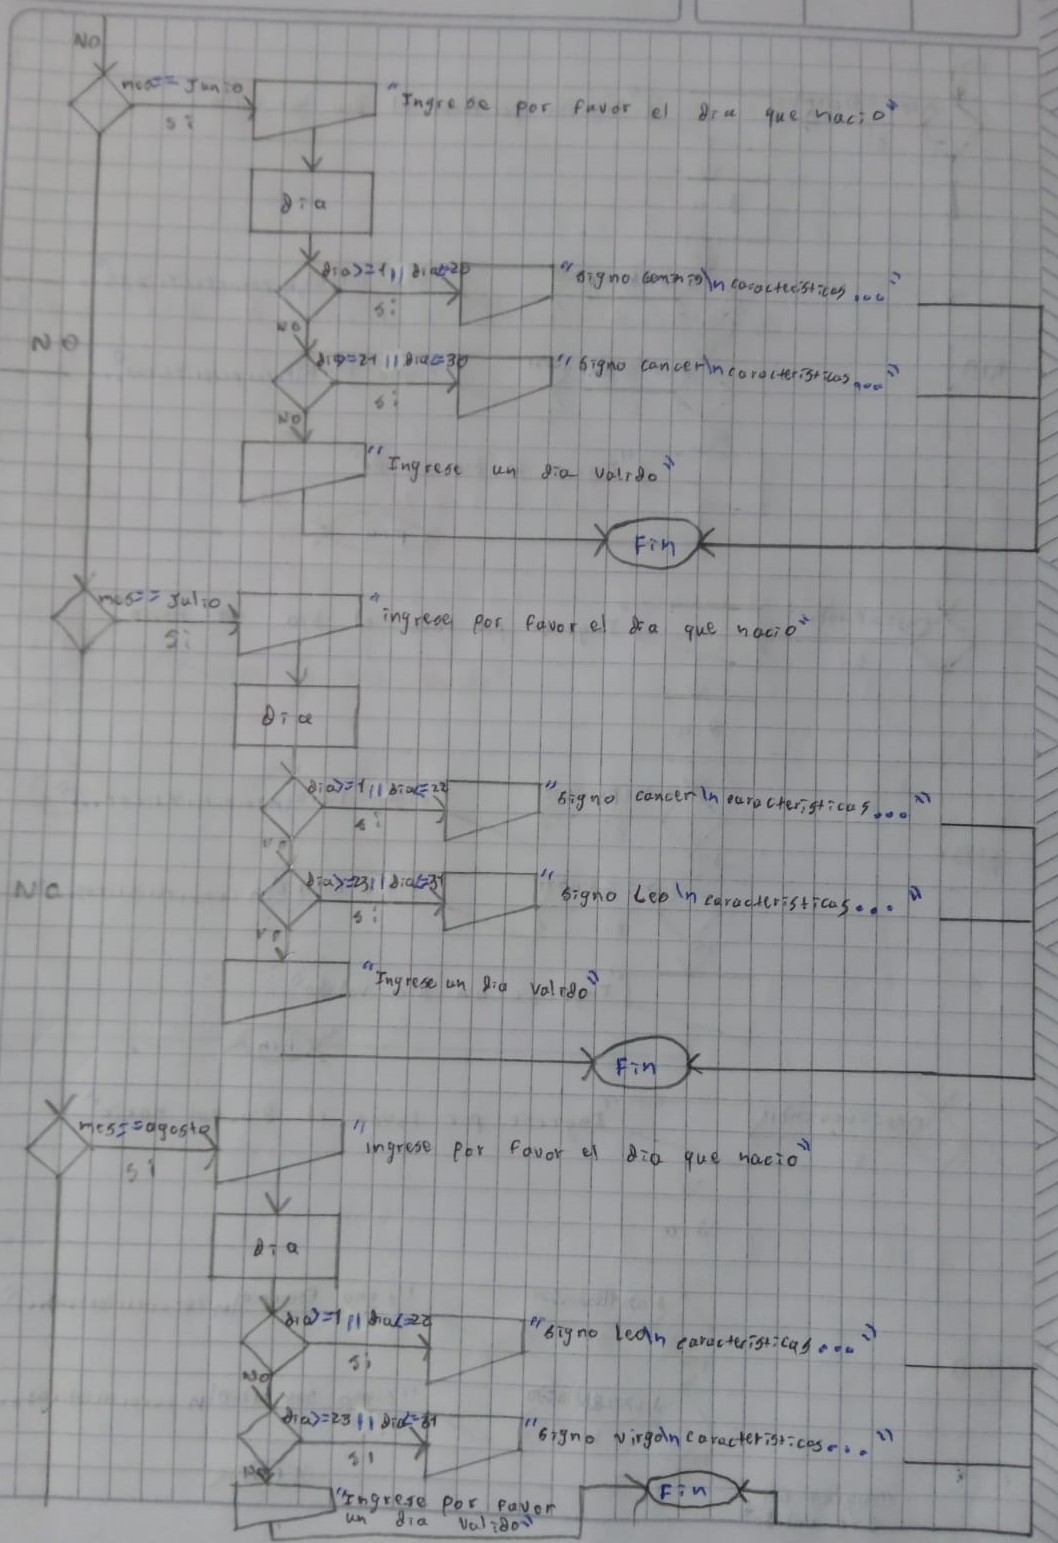 NO
mes== Junio
"Ingrese por favor el dia que nacio"
si
dia
dia>=1 || dia<=20
"Signo Geminis\n caracteristicas..."
si
NO
NO
dia>=21 || dia<=30
"Signo cancer\n caracteristicas..."
si
NO
"Ingrese un dia valido"
Fin
mes== Julio
"ingrese por favor el dia que nacio"
si
dia
dia>=1 || dia<=22
"Signo cancer\n caracteristicas..."
si
NO
dia>=23 || dia<=31
"Signo Leo\n caracteristicas..."
si
"Ingrese un dia valido"
Fin
mes==agosto
"ingrese por favor el dia que nacio"
si
dia
dia>=1 || dia<=22
"Signo leo\n caracteristicas..."
si
NO
dia>=23 || dia<=31
"Signo virgo\n caracteristicas..."
si
NO
"Ingrese por favor
un dia valido"
Fin